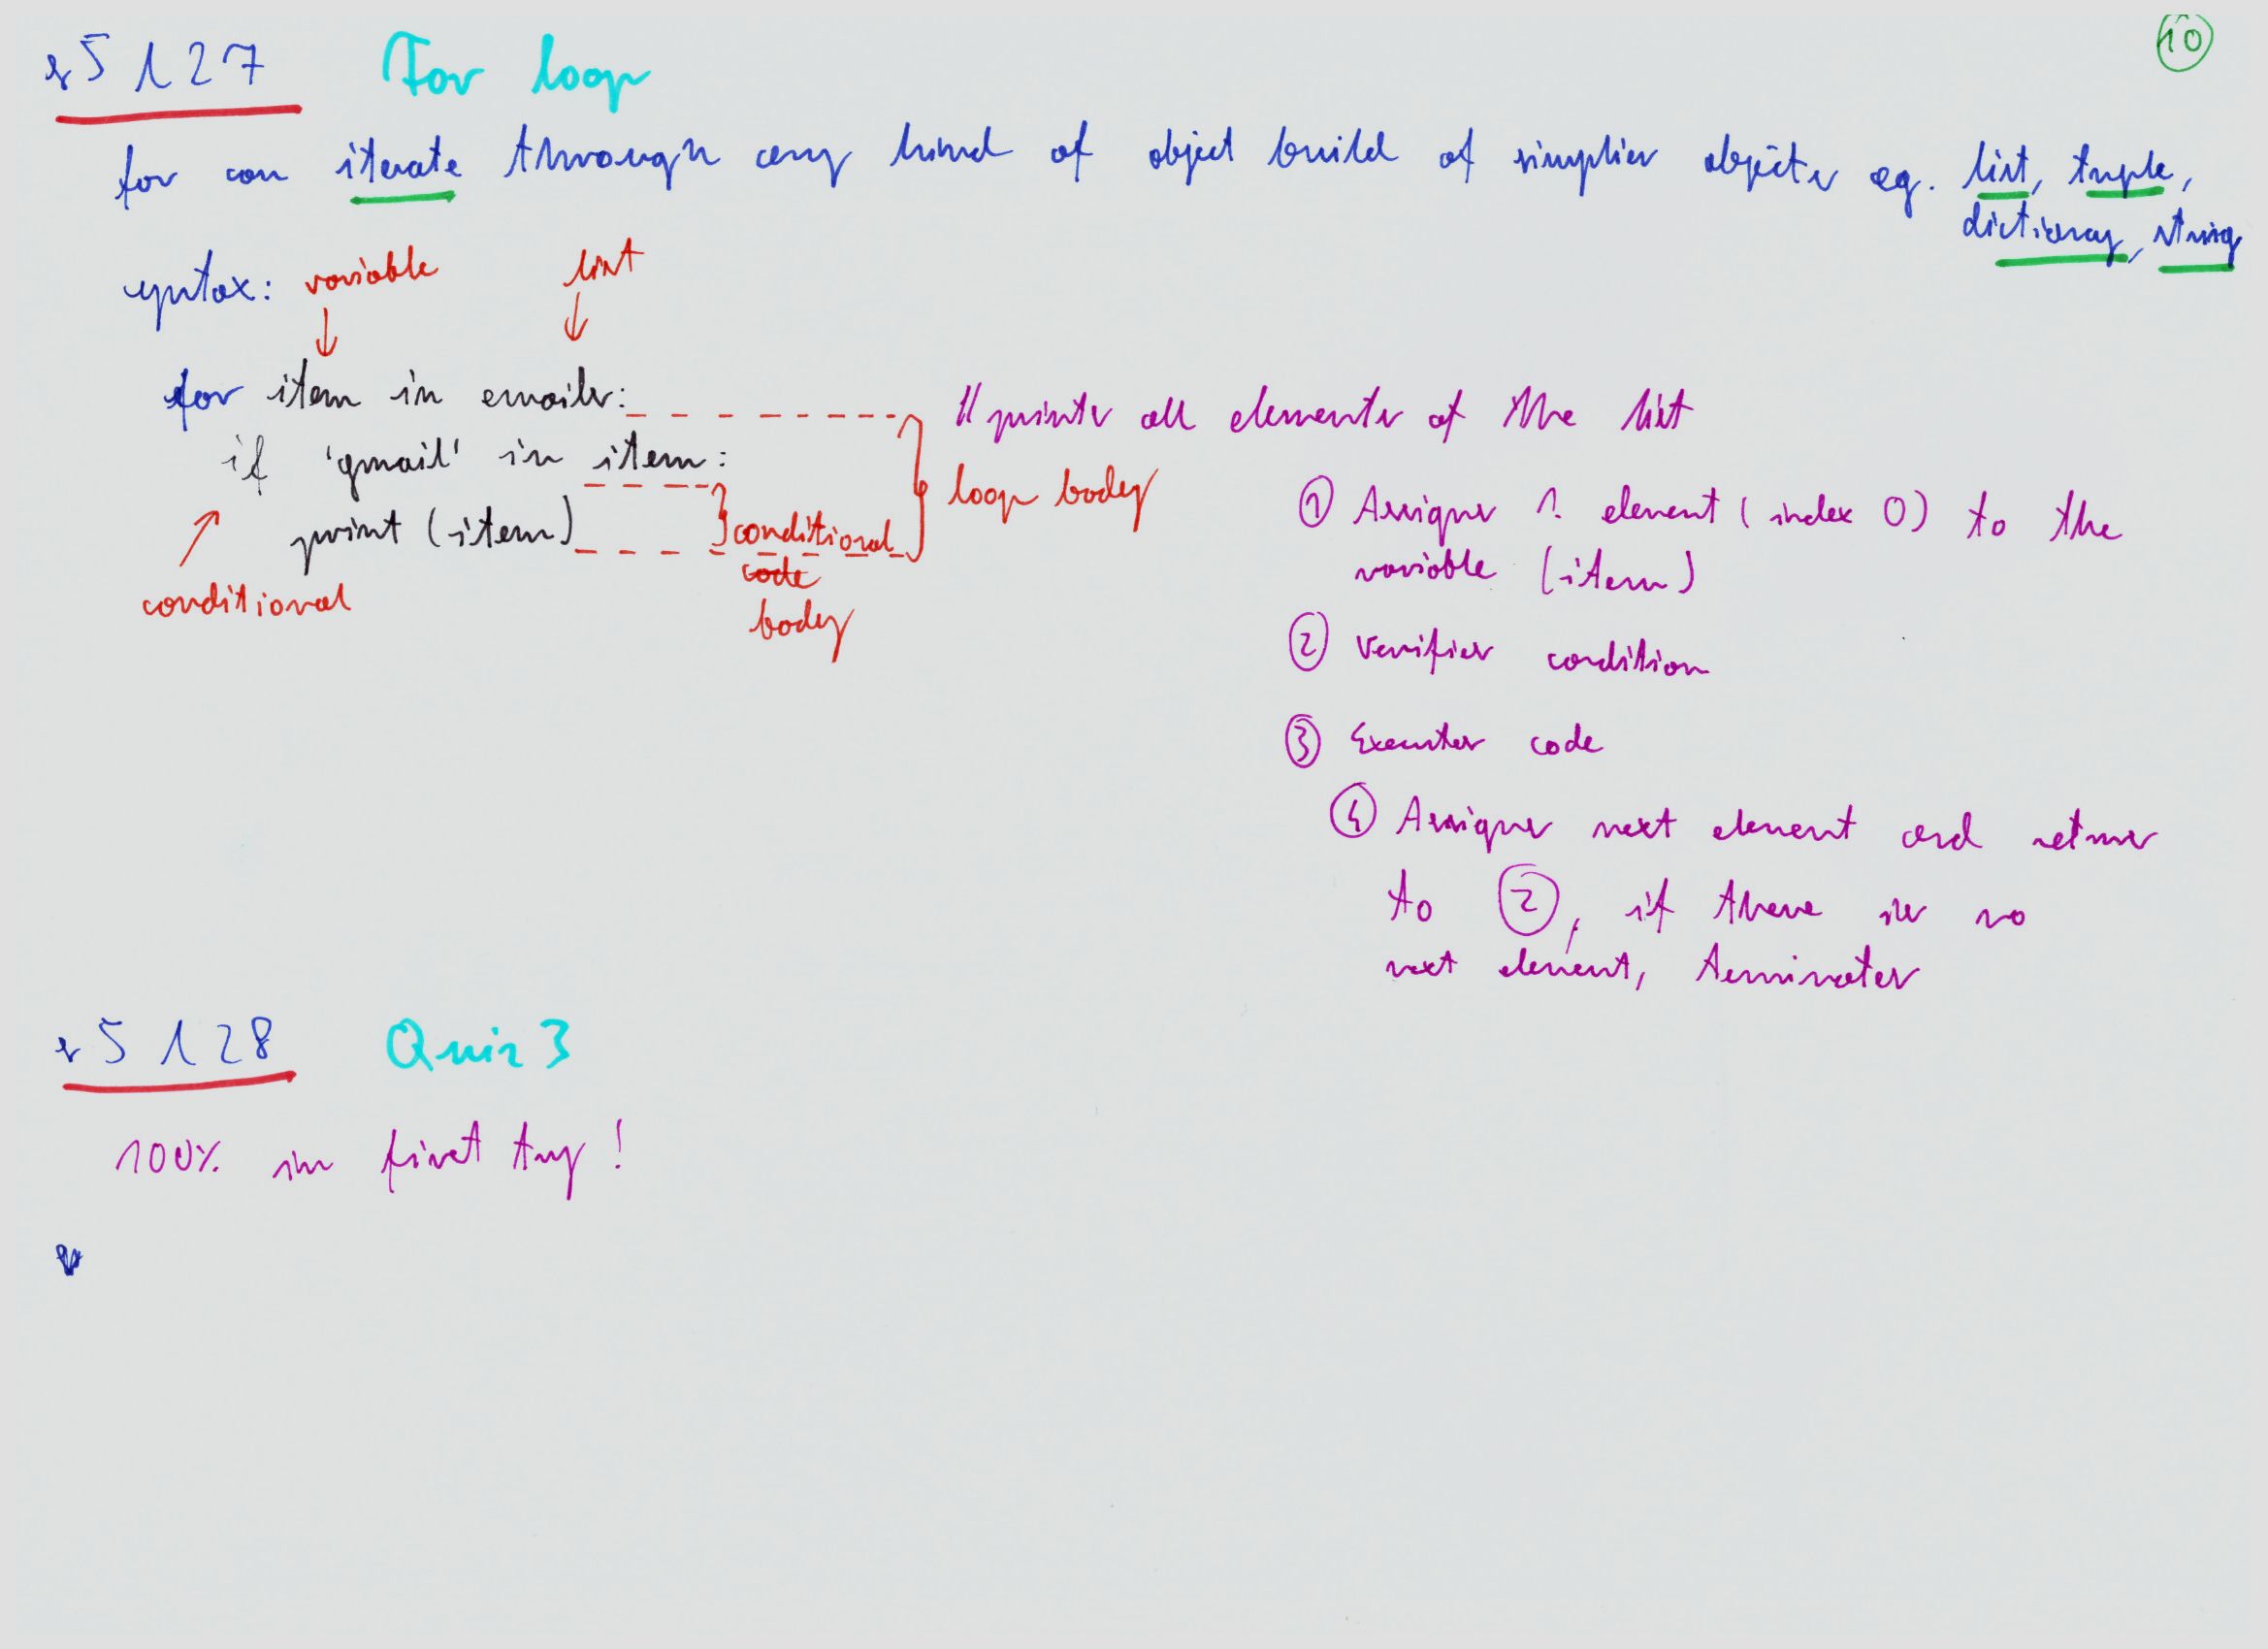 s5 127 For loop
10
for can iterate through any kind of object build of simplier objects eg. list, tuple,
dictionary, string
syntax: variable list
for item in emails:
if 'gmail' in item:
print (item)
conditional
conditional
code
body
loop body
// prints all elements of the list
1 Assigns 1. element (index 0) to the
variable (item)
2 Verifies condition
3 Executes code
4 Assigns next element and returns
to 2, if there is no
next element, terminates
s5 128 Quiz 3
100% in first try!